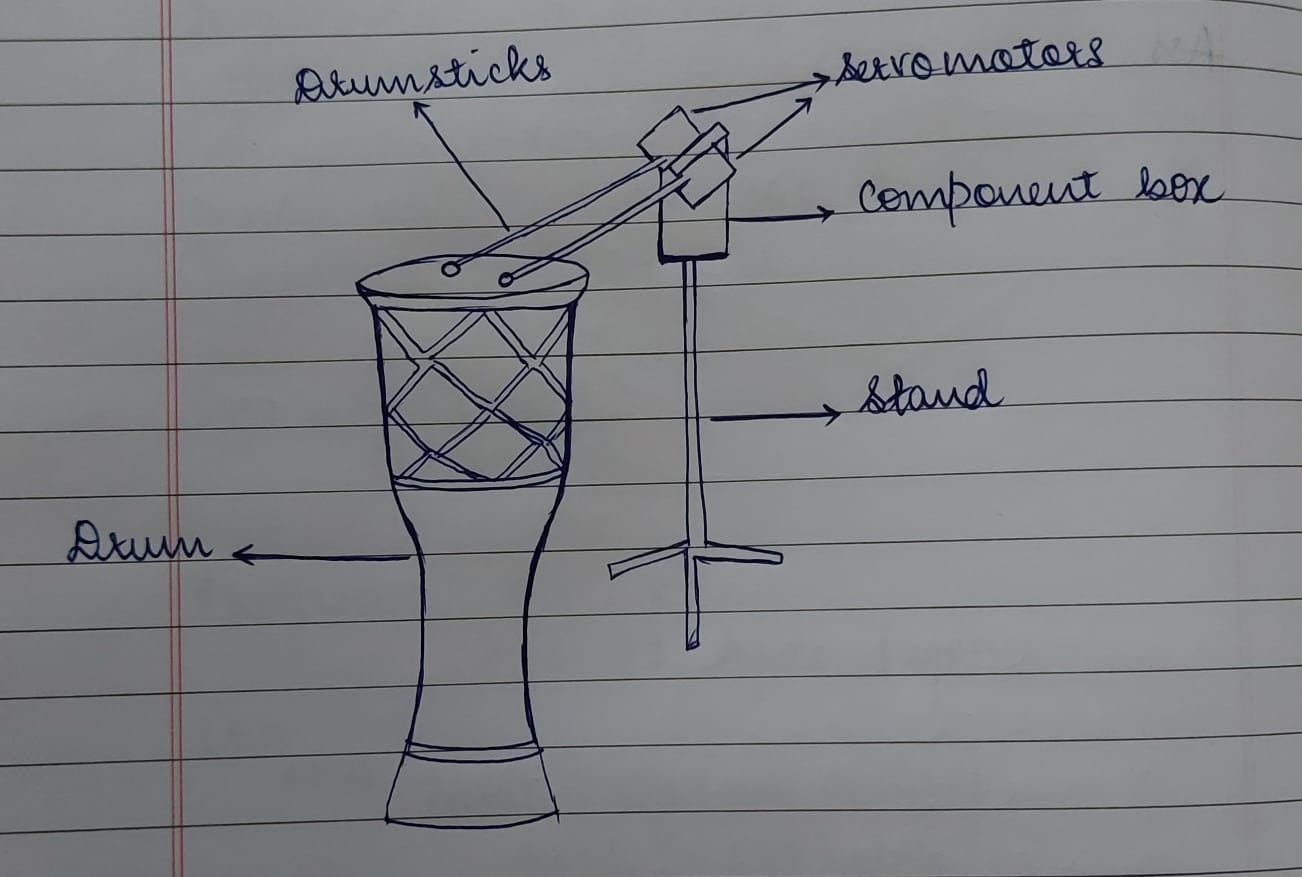 Drumsticks
servomotors
component box
stand
Drum